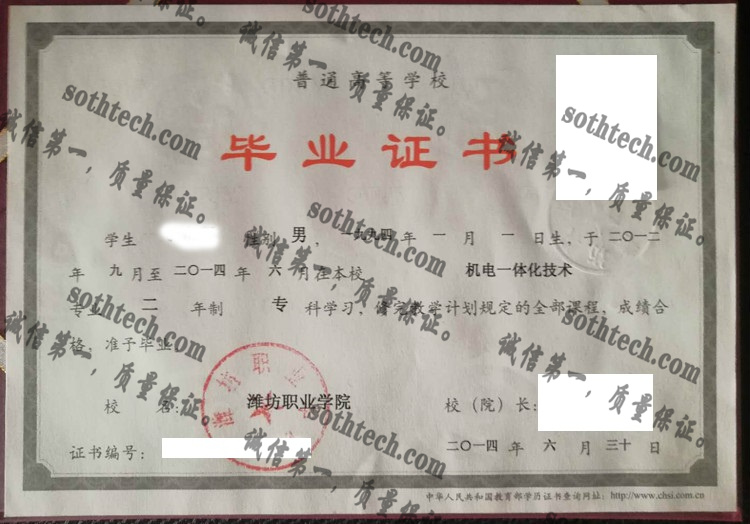 普通高等学校
毕业证书
学生 性别 男 ，一九九四 年 一 月 一 日生，于 二〇一二
年 九 月至 二〇一四 年 六 月在本校 机电一体化技术
专业 二 年制 专 科学习，修完教学计划规定的全部课程，成绩合
格，准予毕业
校 名： 潍坊职业学院 校（院）长：
证书编号： 二〇一四 年 六 月 三十 日
中华人民共和国教育部学历证书查询网址：http://www.chsi.com.cn
潍坊职业
sothtech.com
诚信第一，质量保证。
sothtech.com
诚信第一，质量保证。
sothtech.com
诚信第一，质量保证。
sothtech.com
诚信第一，质量保证。
sothtech.com
诚信第一，质量保证。
sothtech.com
诚信第一，质量保证。
sothtech.com
诚信第一，质量保证。
sothtech.com
诚信第一，质量保证。
sothtech.com
诚信第一，质量保证。